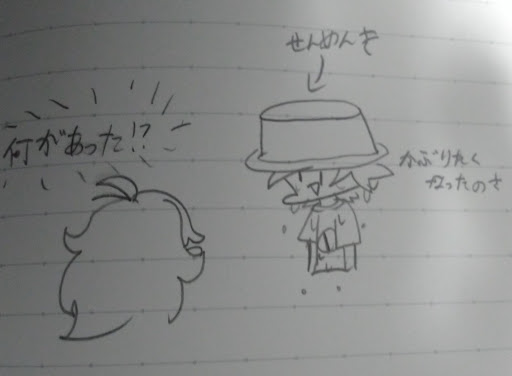 せんめんき
何があった!?
かぶりたく
なったのさ